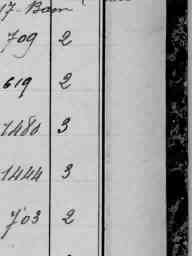 17-Bom
709 2
619 2
1480 3
1444 3
703 2